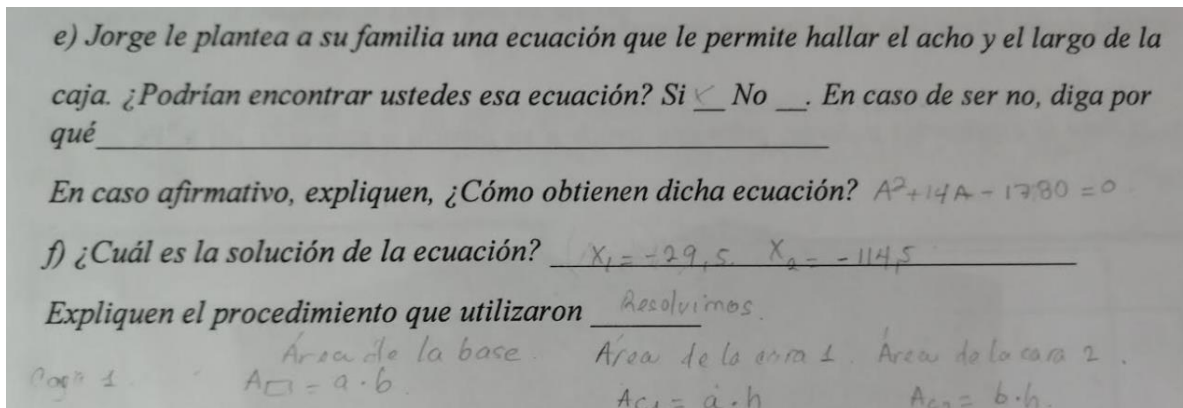 e) Jorge le plantea a su familia una ecuación que le permite hallar el acho y el largo de la
caja. ¿Podrían encontrar ustedes esa ecuación? Si x No __. En caso de ser no, diga por
qué
En caso afirmativo, expliquen, ¿Cómo obtienen dicha ecuación? A²+14A-1780=0.
f) ¿Cuál es la solución de la ecuación? X₁=-29,5. X₂=-114,5
Expliquen el procedimiento que utilizaron Resolvimos.
Área de la base. Área de la cara 1. Área de la cara 2.
1. A▭=a·b.
Ac₁=a·h Ac₂=b·h.